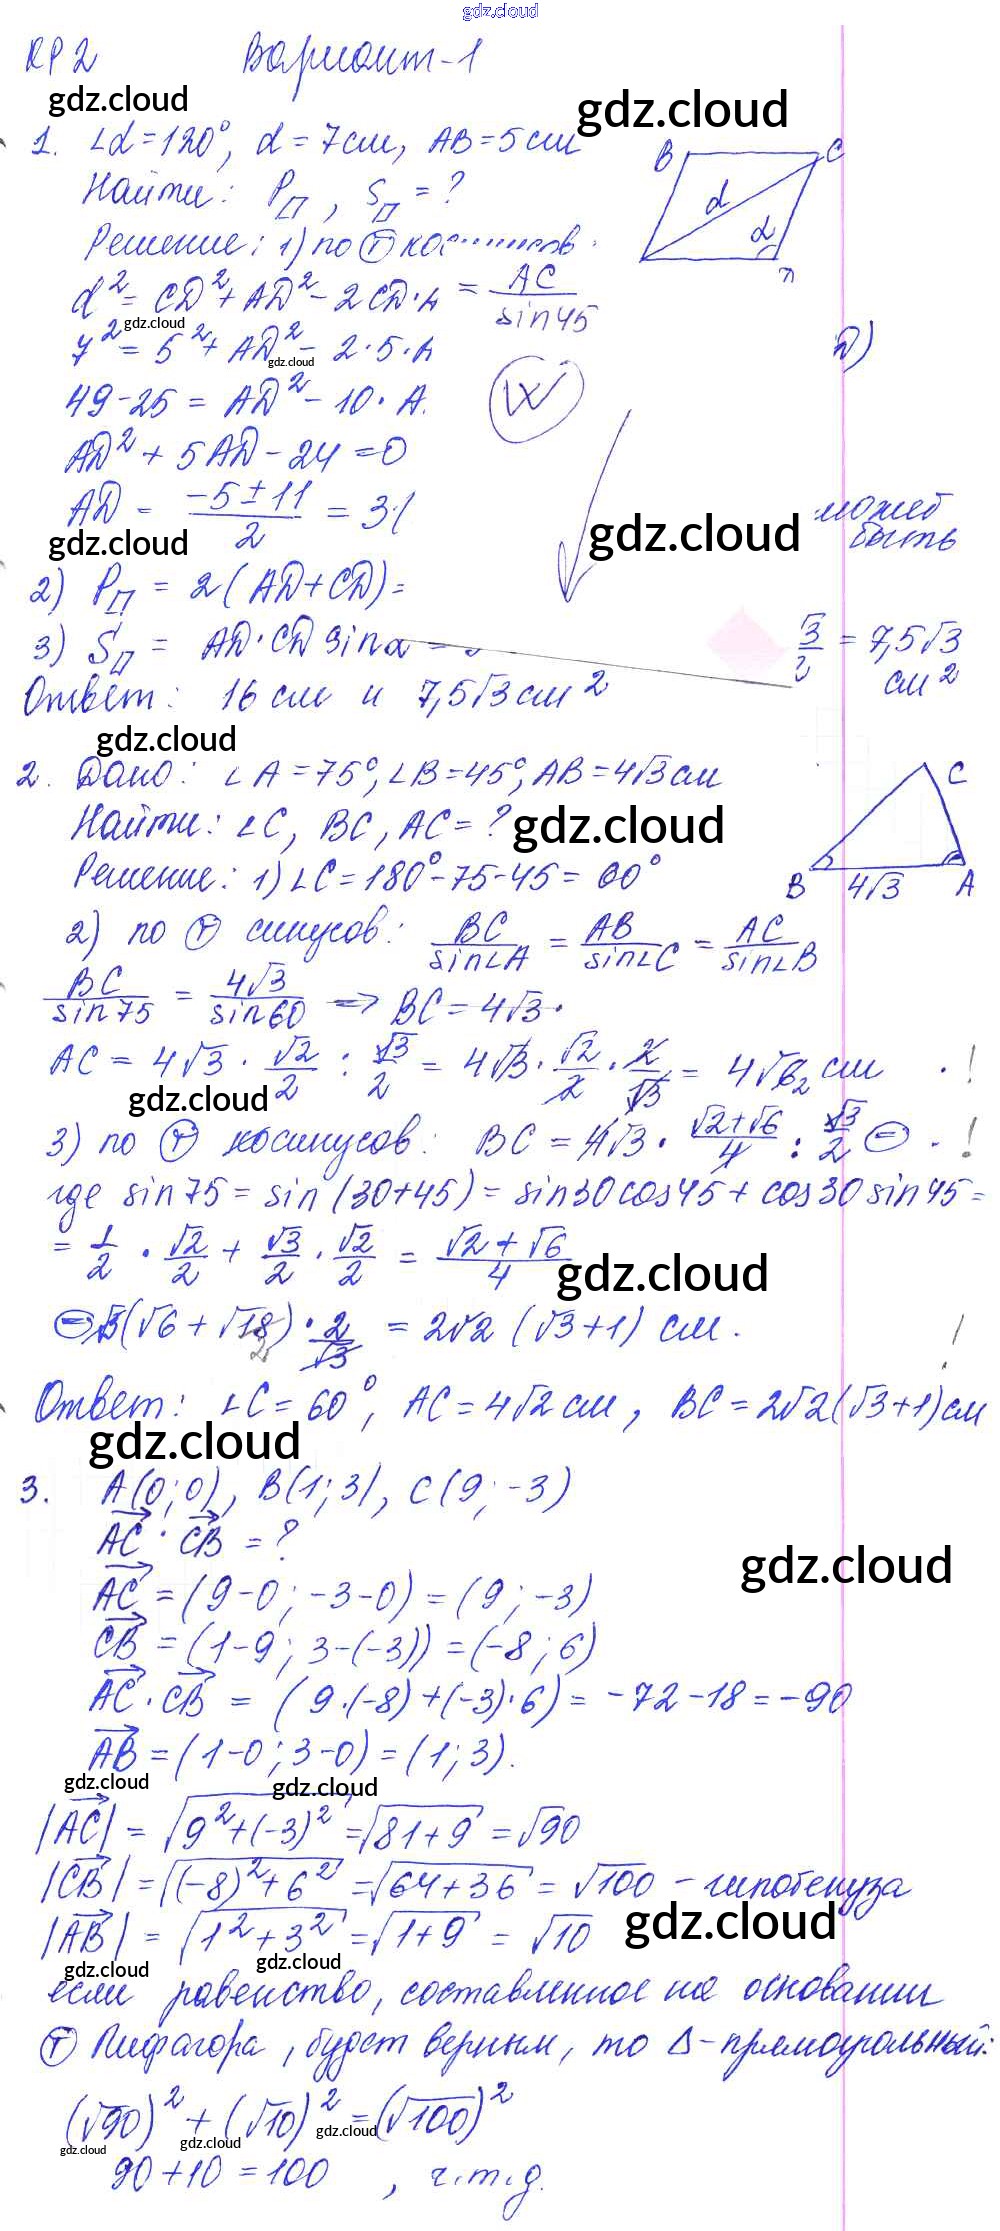 gdz.cloud
КР 2 Вариант-1
gdz.cloud
gdz.cloud
1. ∠α = 120°, d = 7 см, AB = 5 см
Найти: Pп, Sп = ?
B C d α
Решение: 1) по Ⓣ кос
d² = CD² + AD² - 2CD·A = AC/sin45
gdz.cloud
7² = 5² + AD² - 2·5·A
gdz.cloud
Д)
49 - 25 = AD² - 10·A.
W
AD² + 5AD - 24 = 0
AD = (-5 ± 11)/2 = 3
gdz.cloud
gdz.cloud
может
быть
2) Pп = 2(AD + CD) =
3) Sп = AD·CD sinα =
√3/2 = 7,5√3
см²
Ответ: 16 см и 7,5√3 см²
gdz.cloud
2. Дано: ∠A = 75°, ∠B = 45°, AB = 4√3 см
Найти: ∠C, BC, AC = ?
gdz.cloud
C B 4√3 A
Решение: 1) ∠C = 180° - 75 - 45 = 60°
2) по Ⓣ синусов: BC/sin∠A = AB/sin∠C = AC/sin∠B
BC/sin75 = 4√3/sin60 => BC = 4√3 ·
AC = 4√3 · √2/2 : √3/2 = 4√3 · √2/2 · 2/√3 = 4√2 см · !
gdz.cloud
3) по Ⓣ косинусов: BC = 4√3 · (√2+√6)/4 : √3/2 ⊖ · !
где sin75 = sin(30+45) = sin30cos45 + cos30sin45 =
= 1/2 · √2/2 + √3/2 · √2/2 = (√2+√6)/4
gdz.cloud
⊖ √3(√6 + √18) · 2/√3 = 2√2 (√3+1) см. !
Ответ: ∠C = 60°, AC = 4√2 см, BC = 2√2(√3+1) см
gdz.cloud
3. A(0;0), B(1;3), C(9;-3)
AC · CB = ?
gdz.cloud
AC = (9-0; -3-0) = (9; -3)
CB = (1-9; 3-(-3)) = (-8; 6)
AC · CB = (9·(-8) + (-3)·6) = -72 - 18 = -90
AB = (1-0; 3-0) = (1; 3).
gdz.cloud
gdz.cloud
|AC| = √9²+(-3)² = √81+9 = √90
|CB| = √(-8)²+6² = √64+36 = √100 - гипотенуза
gdz.cloud
|AB| = √1²+3² = √1+9 = √10
gdz.cloud
gdz.cloud
если равенство, составленное на основании
Ⓣ Пифагора, будет верным, то Δ-прямоугольный:
(√90)² + (√10)² = (√100)²
gdz.cloud
gdz.cloud
gdz.cloud
90 + 10 = 100 , ч.т.д.